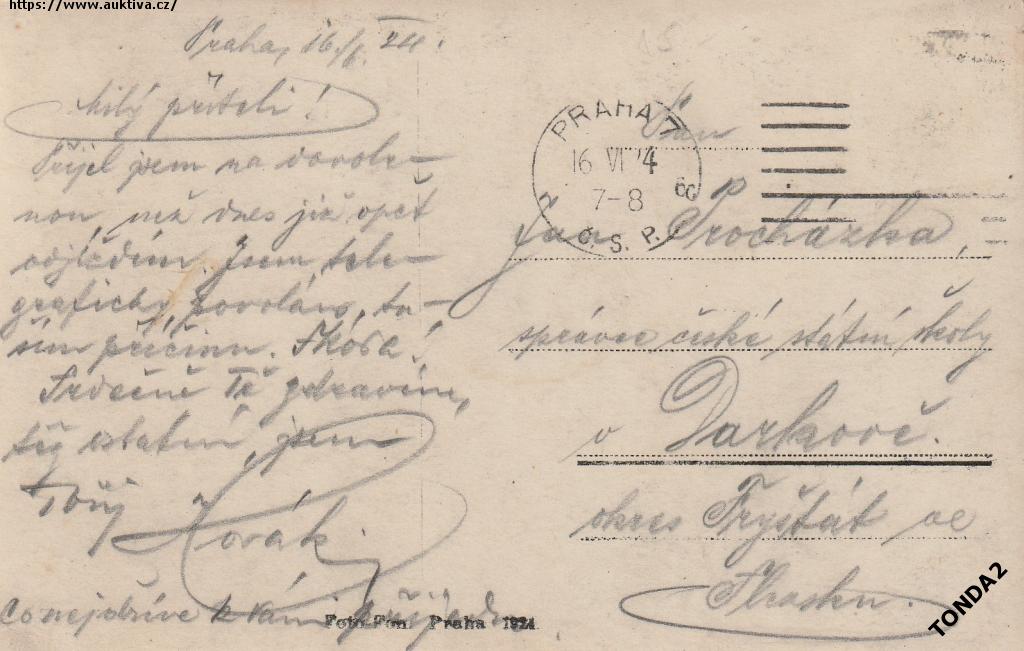 https://www.auktiva.cz/
Praha, 16./6. 24.
Milý příteli!
Přijel jsem na dovole-
nou, než dnes již opět
odjíždím. Jsem tele-
graficky povolán, ta-
sím příčinu. Škoda!
Srdečně Tě zdravím,
též ostatní, jsem
Tvůj
Novák
Co nejdříve k Vám přijedu.
Foto-Fon. Praha 1924.
PRAHA 7
16 VI 24
7-8
Č. S. P.
Pan
Jan Procházka,
správce české státní školy
v Darkově.
okres Fryštát ve
Slezsku.
TONDA2